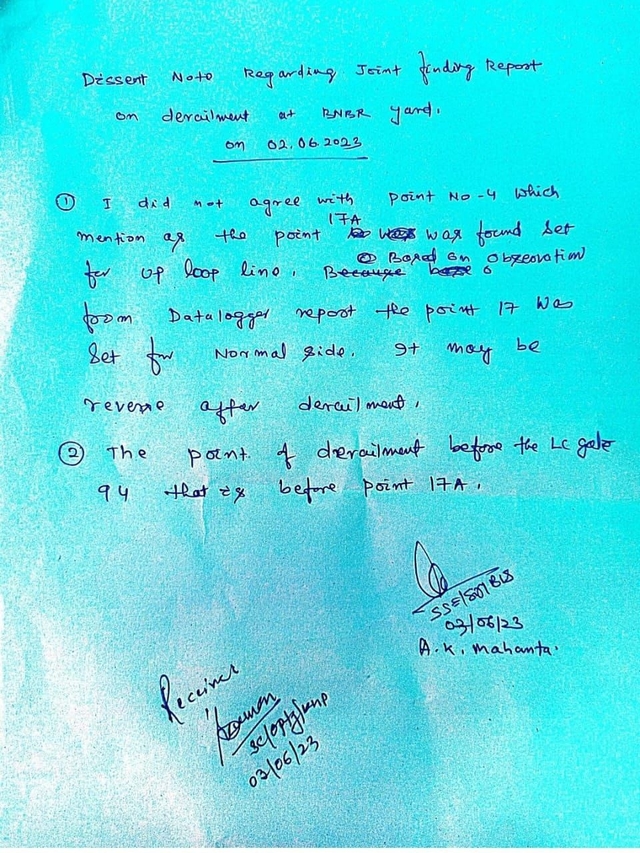 Dissent Note Regarding Joint finding Report
on derailment at BNBR yard.
on 02.06.2023
① I did not agree with point No-4 which
mention as the point 17A was found set
for up loop line. Because Based on observation
from Datalogger report the point 17 was
Set for Normal side. It may be
reverse after derailment.
② The point of derailment before the LC gate
94 that is before point 17A.
SSE/
03/06/23
A.K. Mahanta.
Received
03/06/23